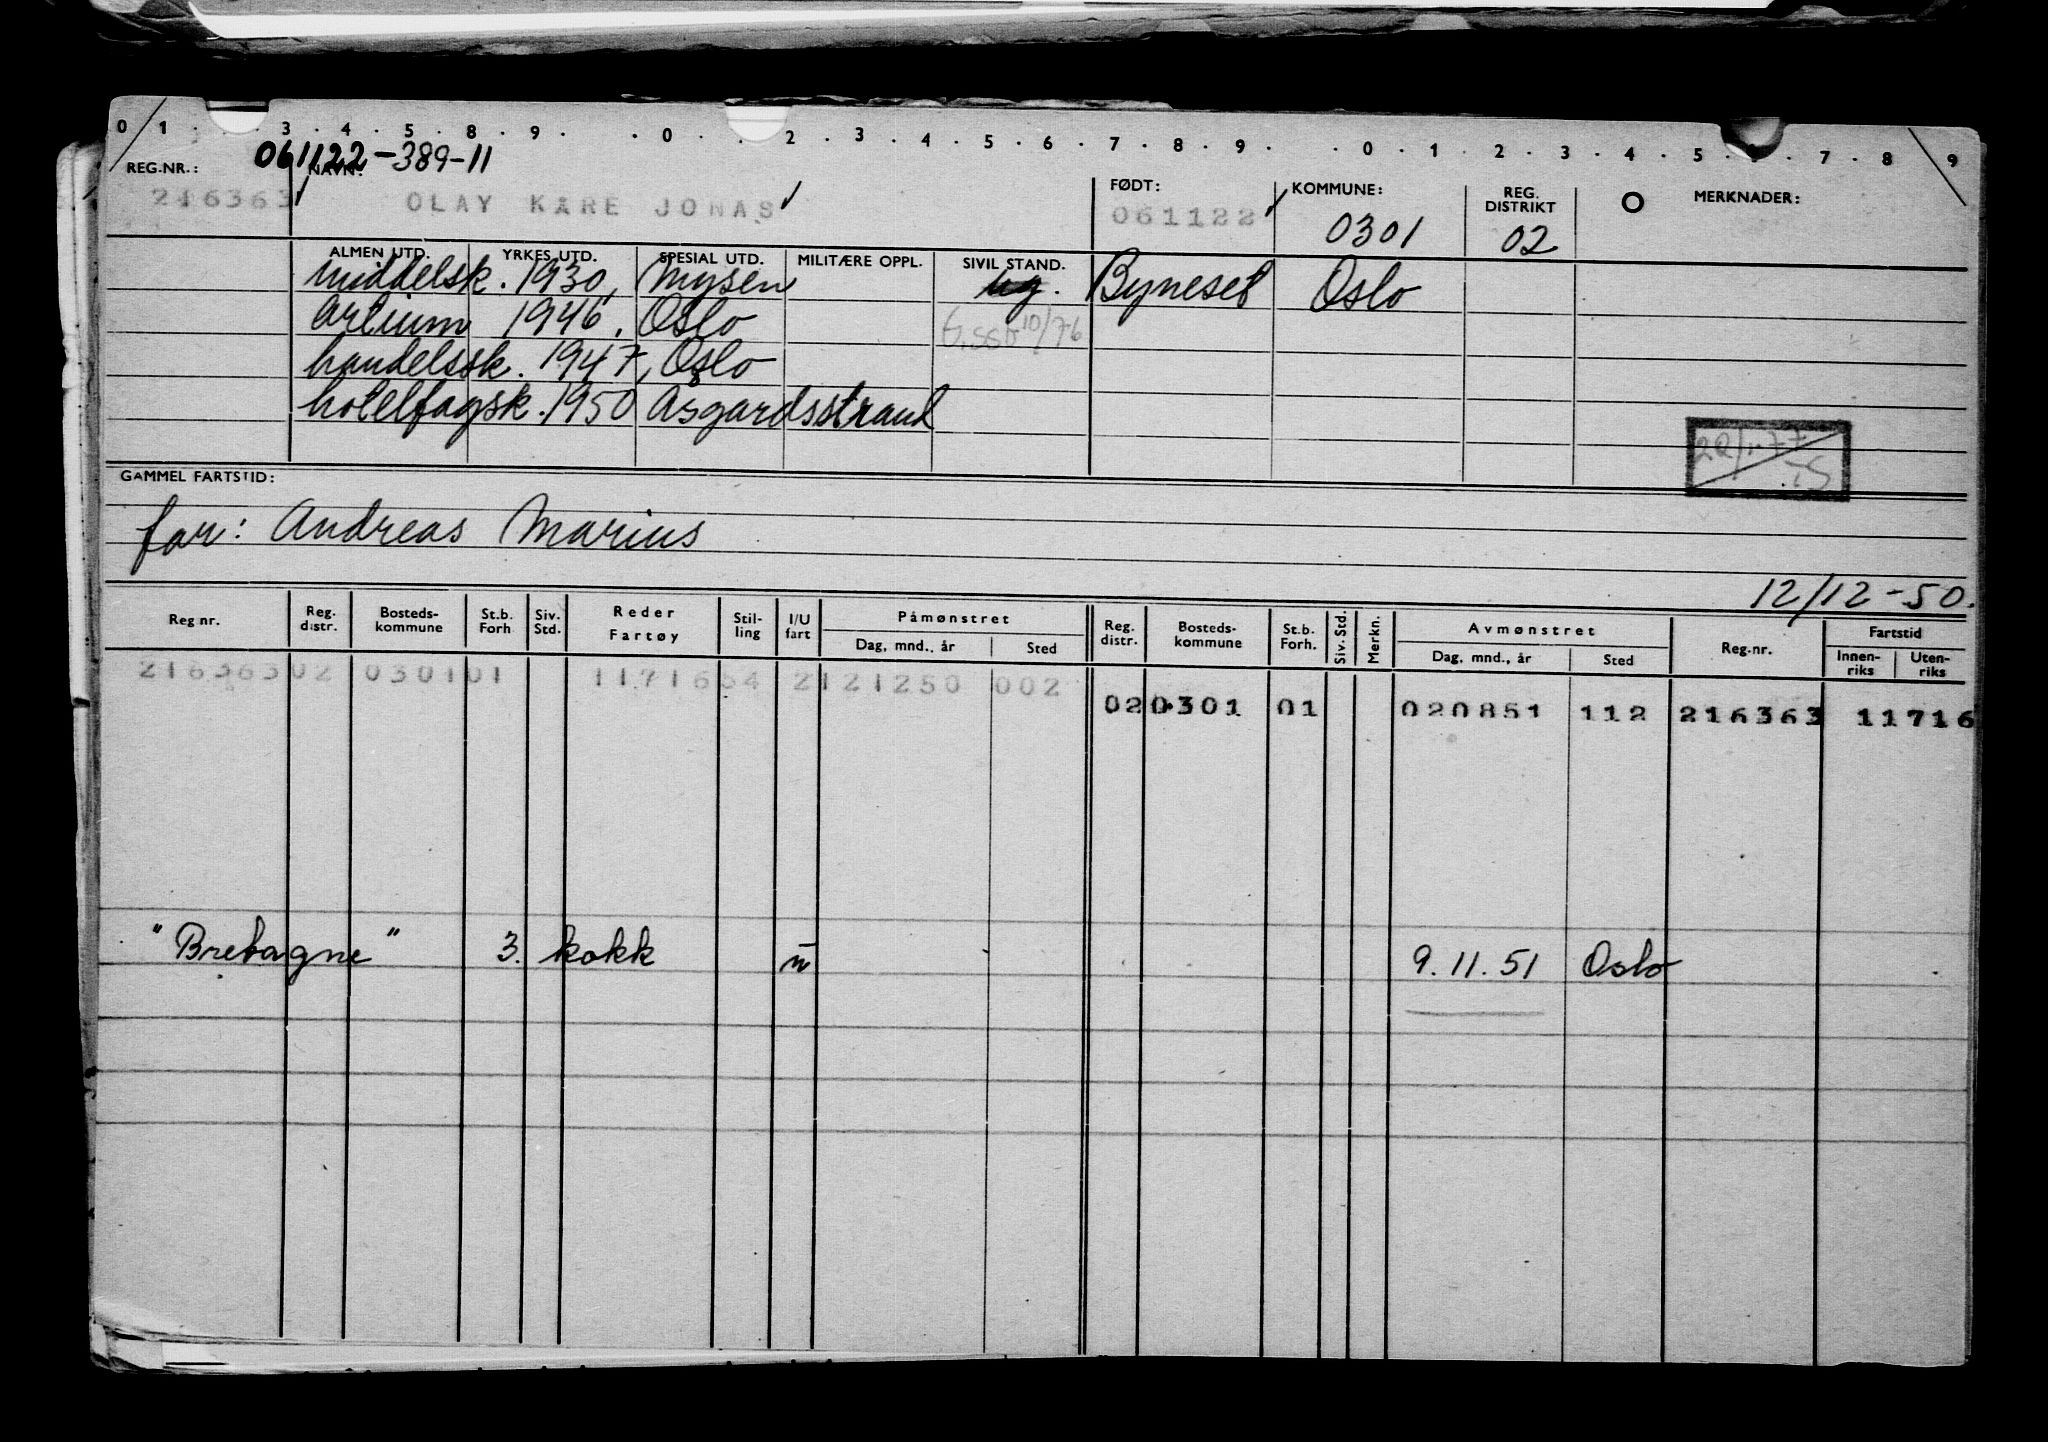 0 1 . . 3 . 4 . 5 . 8 . 9 . . 0 . . 2 . 3 . 4 . 5 . 6 . 7 . 8 . 9 . . 0 . 1 . 2 . 3 . 4 . 5 . 6 . 7 . 8 9
061122-389-11
REG.NR.: NAVN: FØDT: KOMMUNE: REG. DISTRIKT O MERKNADER:
216363 OLAY KÅRE JONAS 061122 0301 02
ALMEN UTD. YRKES UTD. SPESIAL UTD. MILITÆRE OPPL. SIVIL STAND.
middelsk. 1930, Mysen ug. Byneset Oslo
Artium 1946, Oslo 10/76
handelssk. 1947, Oslo
hotelfagsk. 1950 Åsgardsstrand
GAMMEL FARTSTID:
far: Andreas Marius
12/12-50.
Reg nr. Reg. distr. Bosteds-kommune St.b. Forh Siv. Std. Reder Fartøy Stil-ling I/U fart Påmønstret Dag, mnd., år Sted Reg. distr. Bosteds-kommune St.b. Forh. Siv. Std. Merkn. Avmønstret Dag, mnd., år Sted Reg.nr. Fartstid Innen-riks Uten-riks
216363 02 0301 01 11716 54 2 121250 002
02 0301 01 020851 112 216363 11716
"Bretagne" 3. kokk u 9.11.51 Oslo